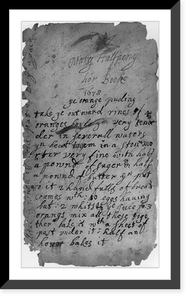 Mary Halfpeny
her Booke
1678
ye orange puding
take ye out ward rines of 3
oranges boyle ym very ten
der in severall waters
ym beat them in a
ter very fine with half
a pound of sugar &half
a pound of butter yn put
to it 2 hand fulls of bread
crumes with 10 eges having
out 2 whites ye juce of 3
orangs mix all these toge
ther bake it with a sheet of
past under it: half an
hower bakes it